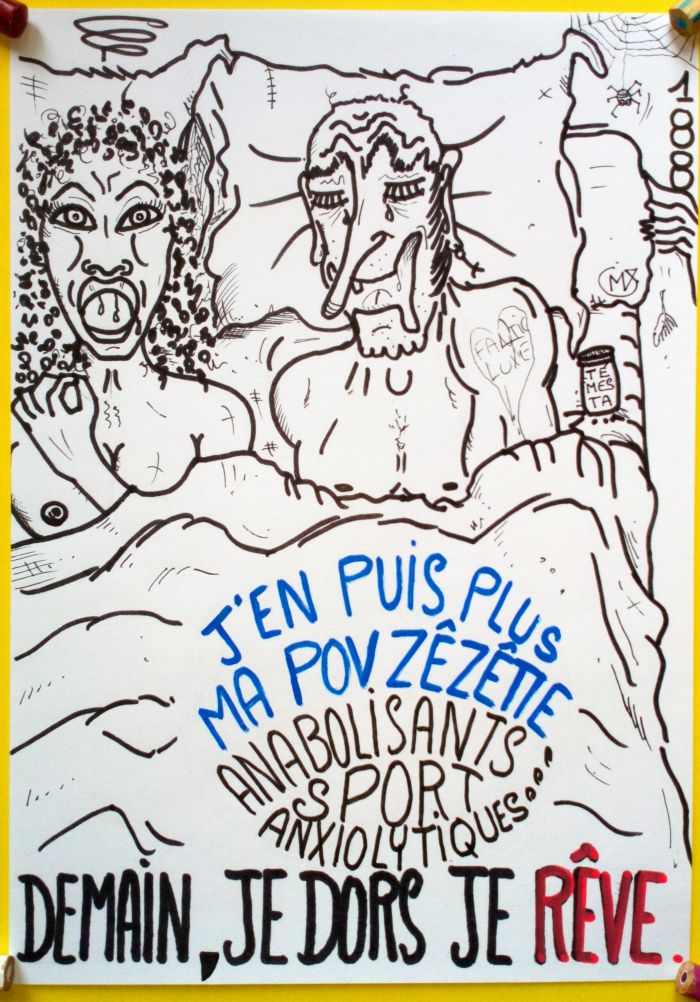 1000
MS
FANTIC
LUXE
TÉ
MES
TA
J'EN PUIS PLUS
MA POV ZÊZÊTTE
ANABOLISANTS
SPORT
ANXIOLYTIQUES...
DEMAIN, JE DORS JE RÊVE.